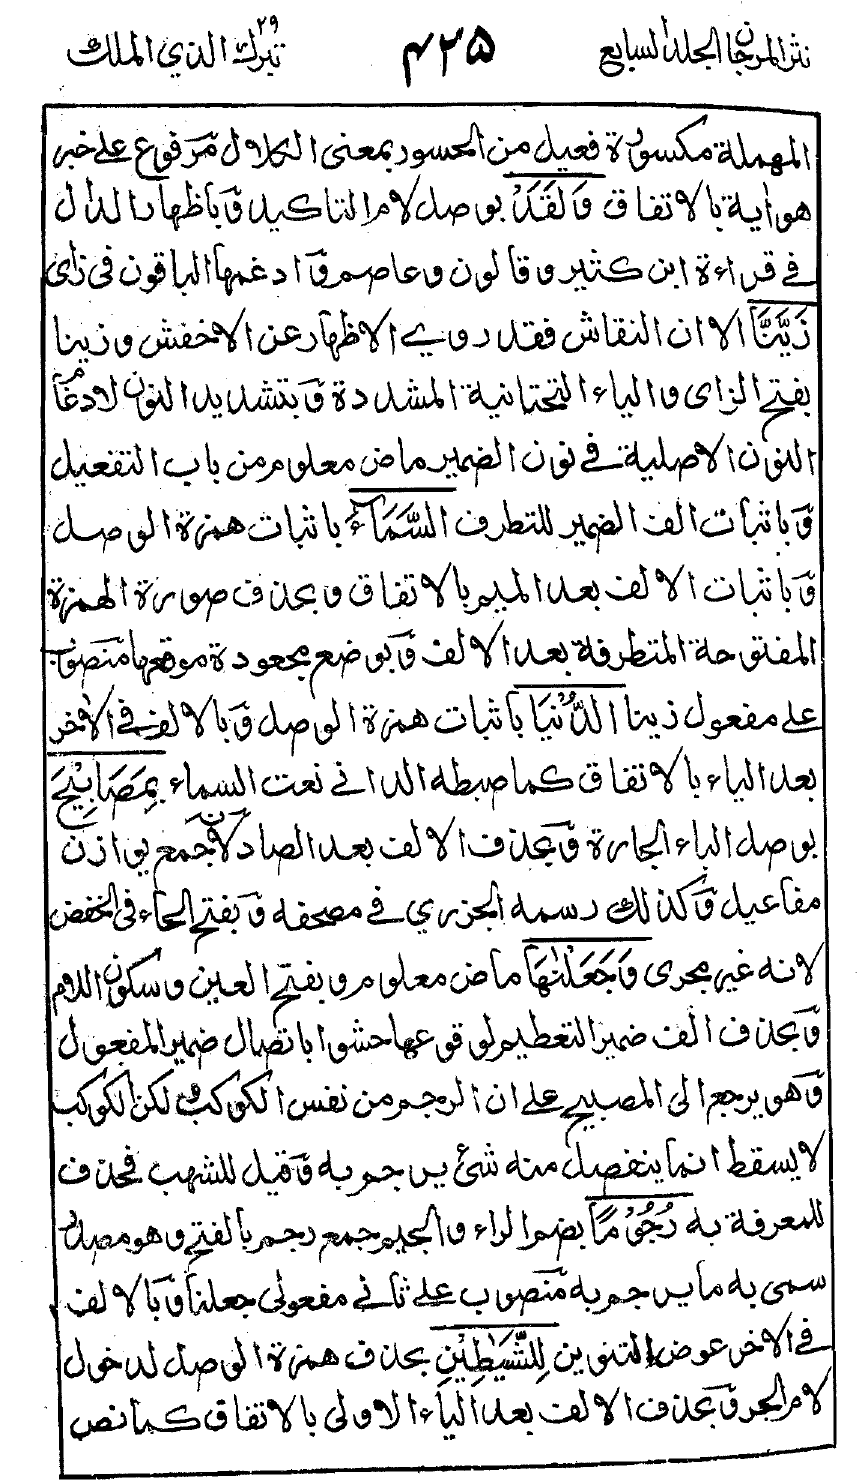 نثر المرجان الجلد السابع ٤٢٥ تبرك الذي الملك ٢٩
المهملة مكسورة فعيل من الحسور بمعنى الكلال مرفوع على خبر
هو اية بالاتفاق وَلَقَدْ بوصل لام التاكيد وباظهار الدال
في قراءة ابن كثير وقالون وعاصم وادغمها الباقون في زاى
زَيَّنَّا الا ان النقاش فقد روي الاظهار عن الاخفش وزينا
بفتح الزاى والياء التحتانية المشددة وبتشديد النون لادغام
النون الاصلية في نون الضمير ماض معلوم من باب التفعيل
وباثبات الف الضمير للتطرف السَّمَاءَ باثبات همزة الوصل
وباثبات الالف بعد الميم بالاتفاق وبحذف صورة الهمزة
المفتوحة المتطرفة بعد الالف وبوضع مجعودة موقعها منصوب
على مفعول زينا الدُّنْيَا باثبات همزة الوصل وبالالف في الاخر
بعد الياء بالاتفاق كما ضبطه الداني نعت السماء بِمَصَابِيْحَ
بوصل الباء الجارة وبحذف الالف بعد الصاد لانه جمع يوازن
مفاعيل وكذلك رسمه الجزري في مصحفه وبفتح الحاء في الخفض
لانه غير مجرى وَجَعَلْنٰهَا ماض معلوم وبفتح العين وسكون اللام
وبحذف الف ضمير التعظيم لوقوعها حشوا باتصال ضمير المفعول
وهو يرجع الى المصبيح على ان الرجم من نفس الكوكب لكن الكوكب
لا يسقط انما ينفصل منه شئ يرجم به وقيل للشهب فحذف
للمعرفة به رُجُوْمًا بضم الراء والجيم جمع رجم بالفتح وهو مصدر
سمى به ما يرجم به منصوب على ثاني مفعولى جعلنا وبالالف
في الاخر عوض التنوين لِلشَّيٰطِيْنِ بحذف همزة الوصل لدخول
لام الجر وبحذف الالف بعد الياء الاولى بالاتفاق كما نص